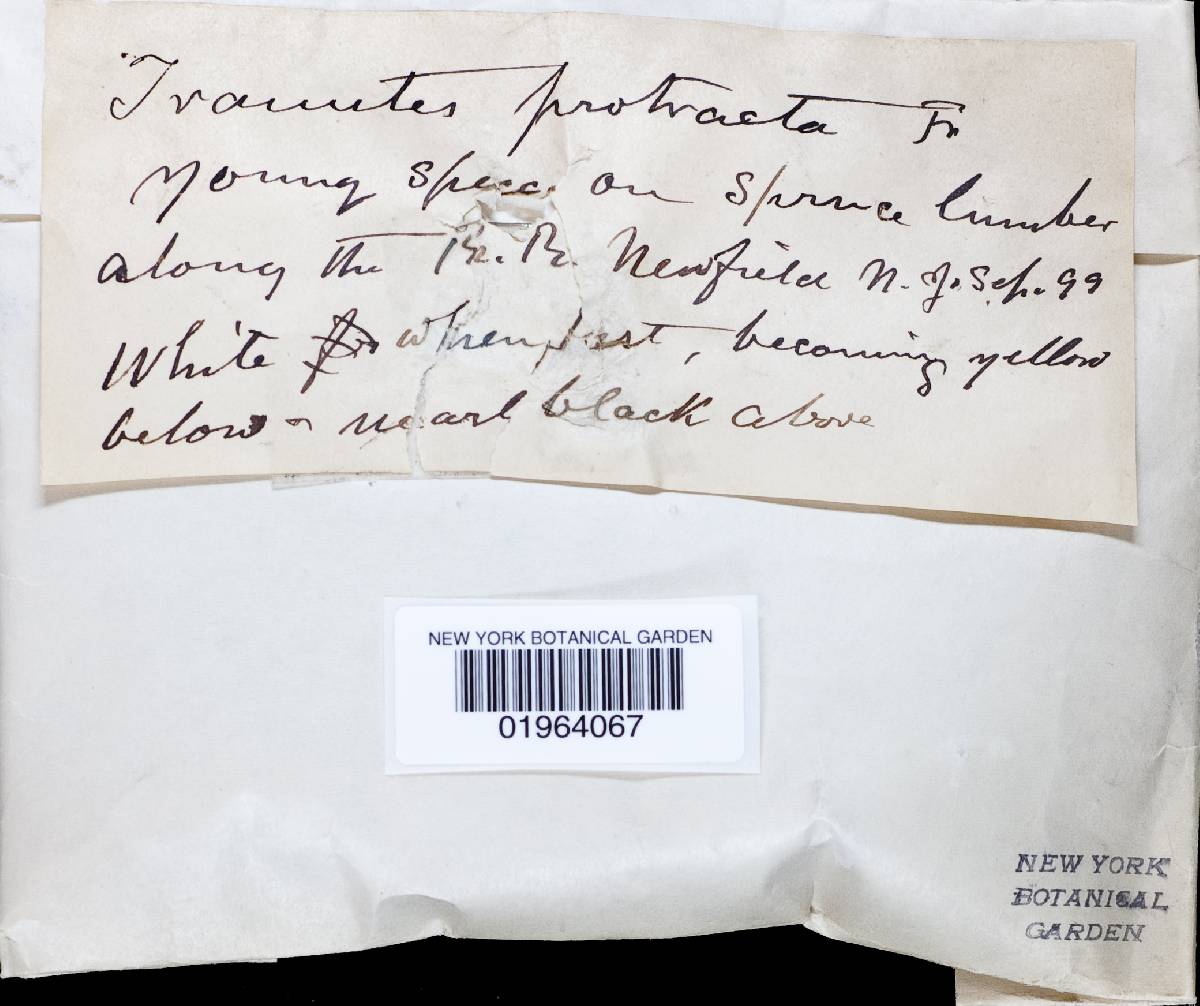 Trametes protracta Fr
young spec on spruce lumber
along the R.R. Newfield N.J. Sep. 99
White when, becoming yellow
below & nearl black above
NEW YORK BOTANICAL GARDEN
01964067
NEW YORK
BOTANICAL
GARDEN